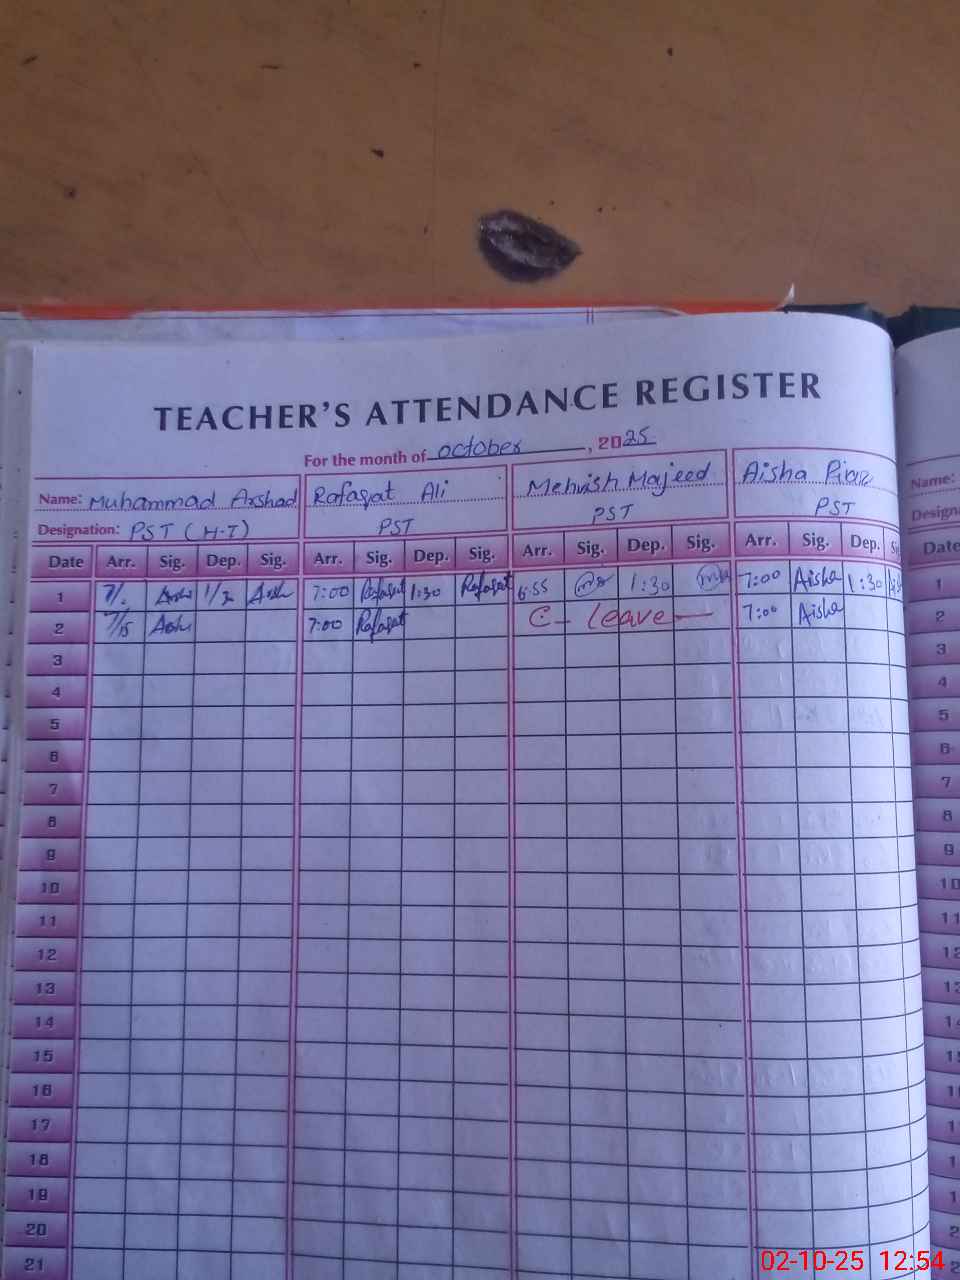 TEACHER'S ATTENDANCE REGISTER
For the month of October, 2025
Name: Muhammad Arshad Rafaqat Ali Mehvish Majeed Aisha
Designation: PST (H.T) PST PST PST
Date Arr. Sig. Dep. Sig. Arr. Sig. Dep. Sig. Arr. Sig. Dep. Sig. Arr. Sig. Dep.
1 7:00 Rafaqat 1:30 Rafaqat 6:55 1:30 7:00 Aisha 1:30
2 7/15 7:00 Rafaqat C- leave 7:00 Aisha
3
4
5
6
7
8
9
10
11
12
13
14
15
16
17
18
19
20
21
Name:
Date
1
2
3
4
5
6
7
8
9
02-10-25 12:54